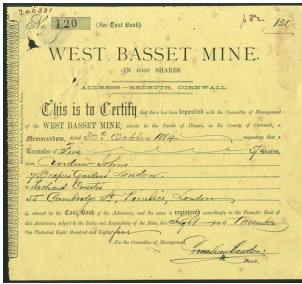 206331
No. 120 (See Cost Book). 120
WEST BASSET MINE.
IN 6000 SHARES.
ADDRESS—REDRUTH, CORNWALL.
This is to Certify that there has been deposited with the Committee of Management
of the WEST BASSET MINE, situate in the Parish of Illogan, in the County of Cornwall, a
Memorandum, dated 30th October 1884 requesting that a
Transfer of Five Shares,
from Andrew Johns
Drapers Gardens London
to Richard Courtis
55 Cambridge St, Pimlico, London
be entered in the Cost Book of the Adventure, and the same is registered accordingly in the Transfer Book of
this Adventure, subject to the Rules and Regulations of the Mine, this eight day of November
One Thousand Eight Hundred and Eighty four
For the Committee of Management,
Purser.